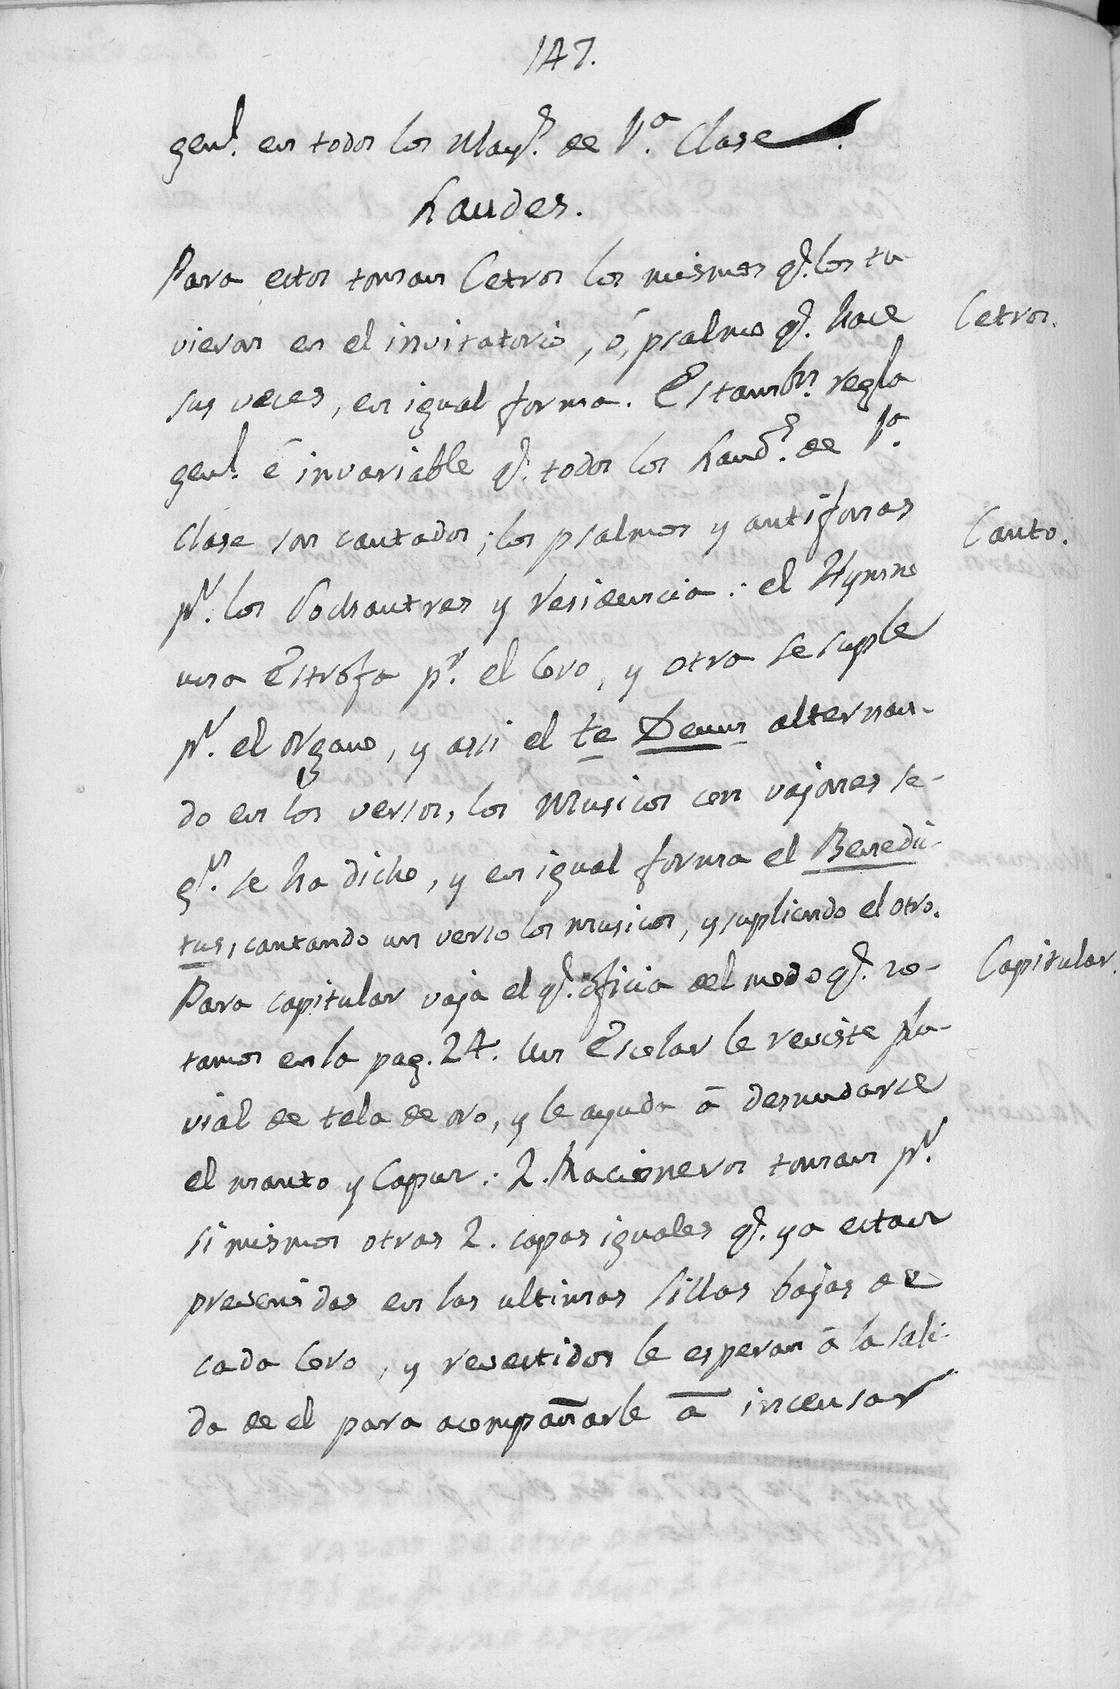 147.
genl. en todos los Mayts. de 1ª. Clase.
Laudes.
Para estos toman Cetros los mismos q. los tu-
vieron en el invitatorio, ó, psalmo q. hace
Cetros.
sus veces, en igual forma. Es tambn. regla
genl. é invariable q. todos los Lauds. de 1ª.
Clase son cantados; los psalmos y antifonas
Canto.
pr. los Sochantres y residencia: el Hymno
una Estrofa pr. el Coro, y otra se suple
pr. el organo, y assi el te Deum alternan-
do en los versos, los Musicos con vajones se-
gn. se ha dicho, y en igual forma el Benedic-
tus, cantando un verso los musicos, y supliendo el otro.
Para capitular vaja el q. oficia del modo q. no-
Capitular.
tamos en la pag. 24. Un Escolar le reviste plu-
vial de tela de oro, y le ayuda á desnudarse
el manto y Capuz: 2. Racioneros toman pr.
si mismos otras 2. capas iguales q. ya estan
prevenidas en las ultimas sillas bajas de
cada Coro, y revestidos le esperan á la sali-
da de el para acompañarle á incensar